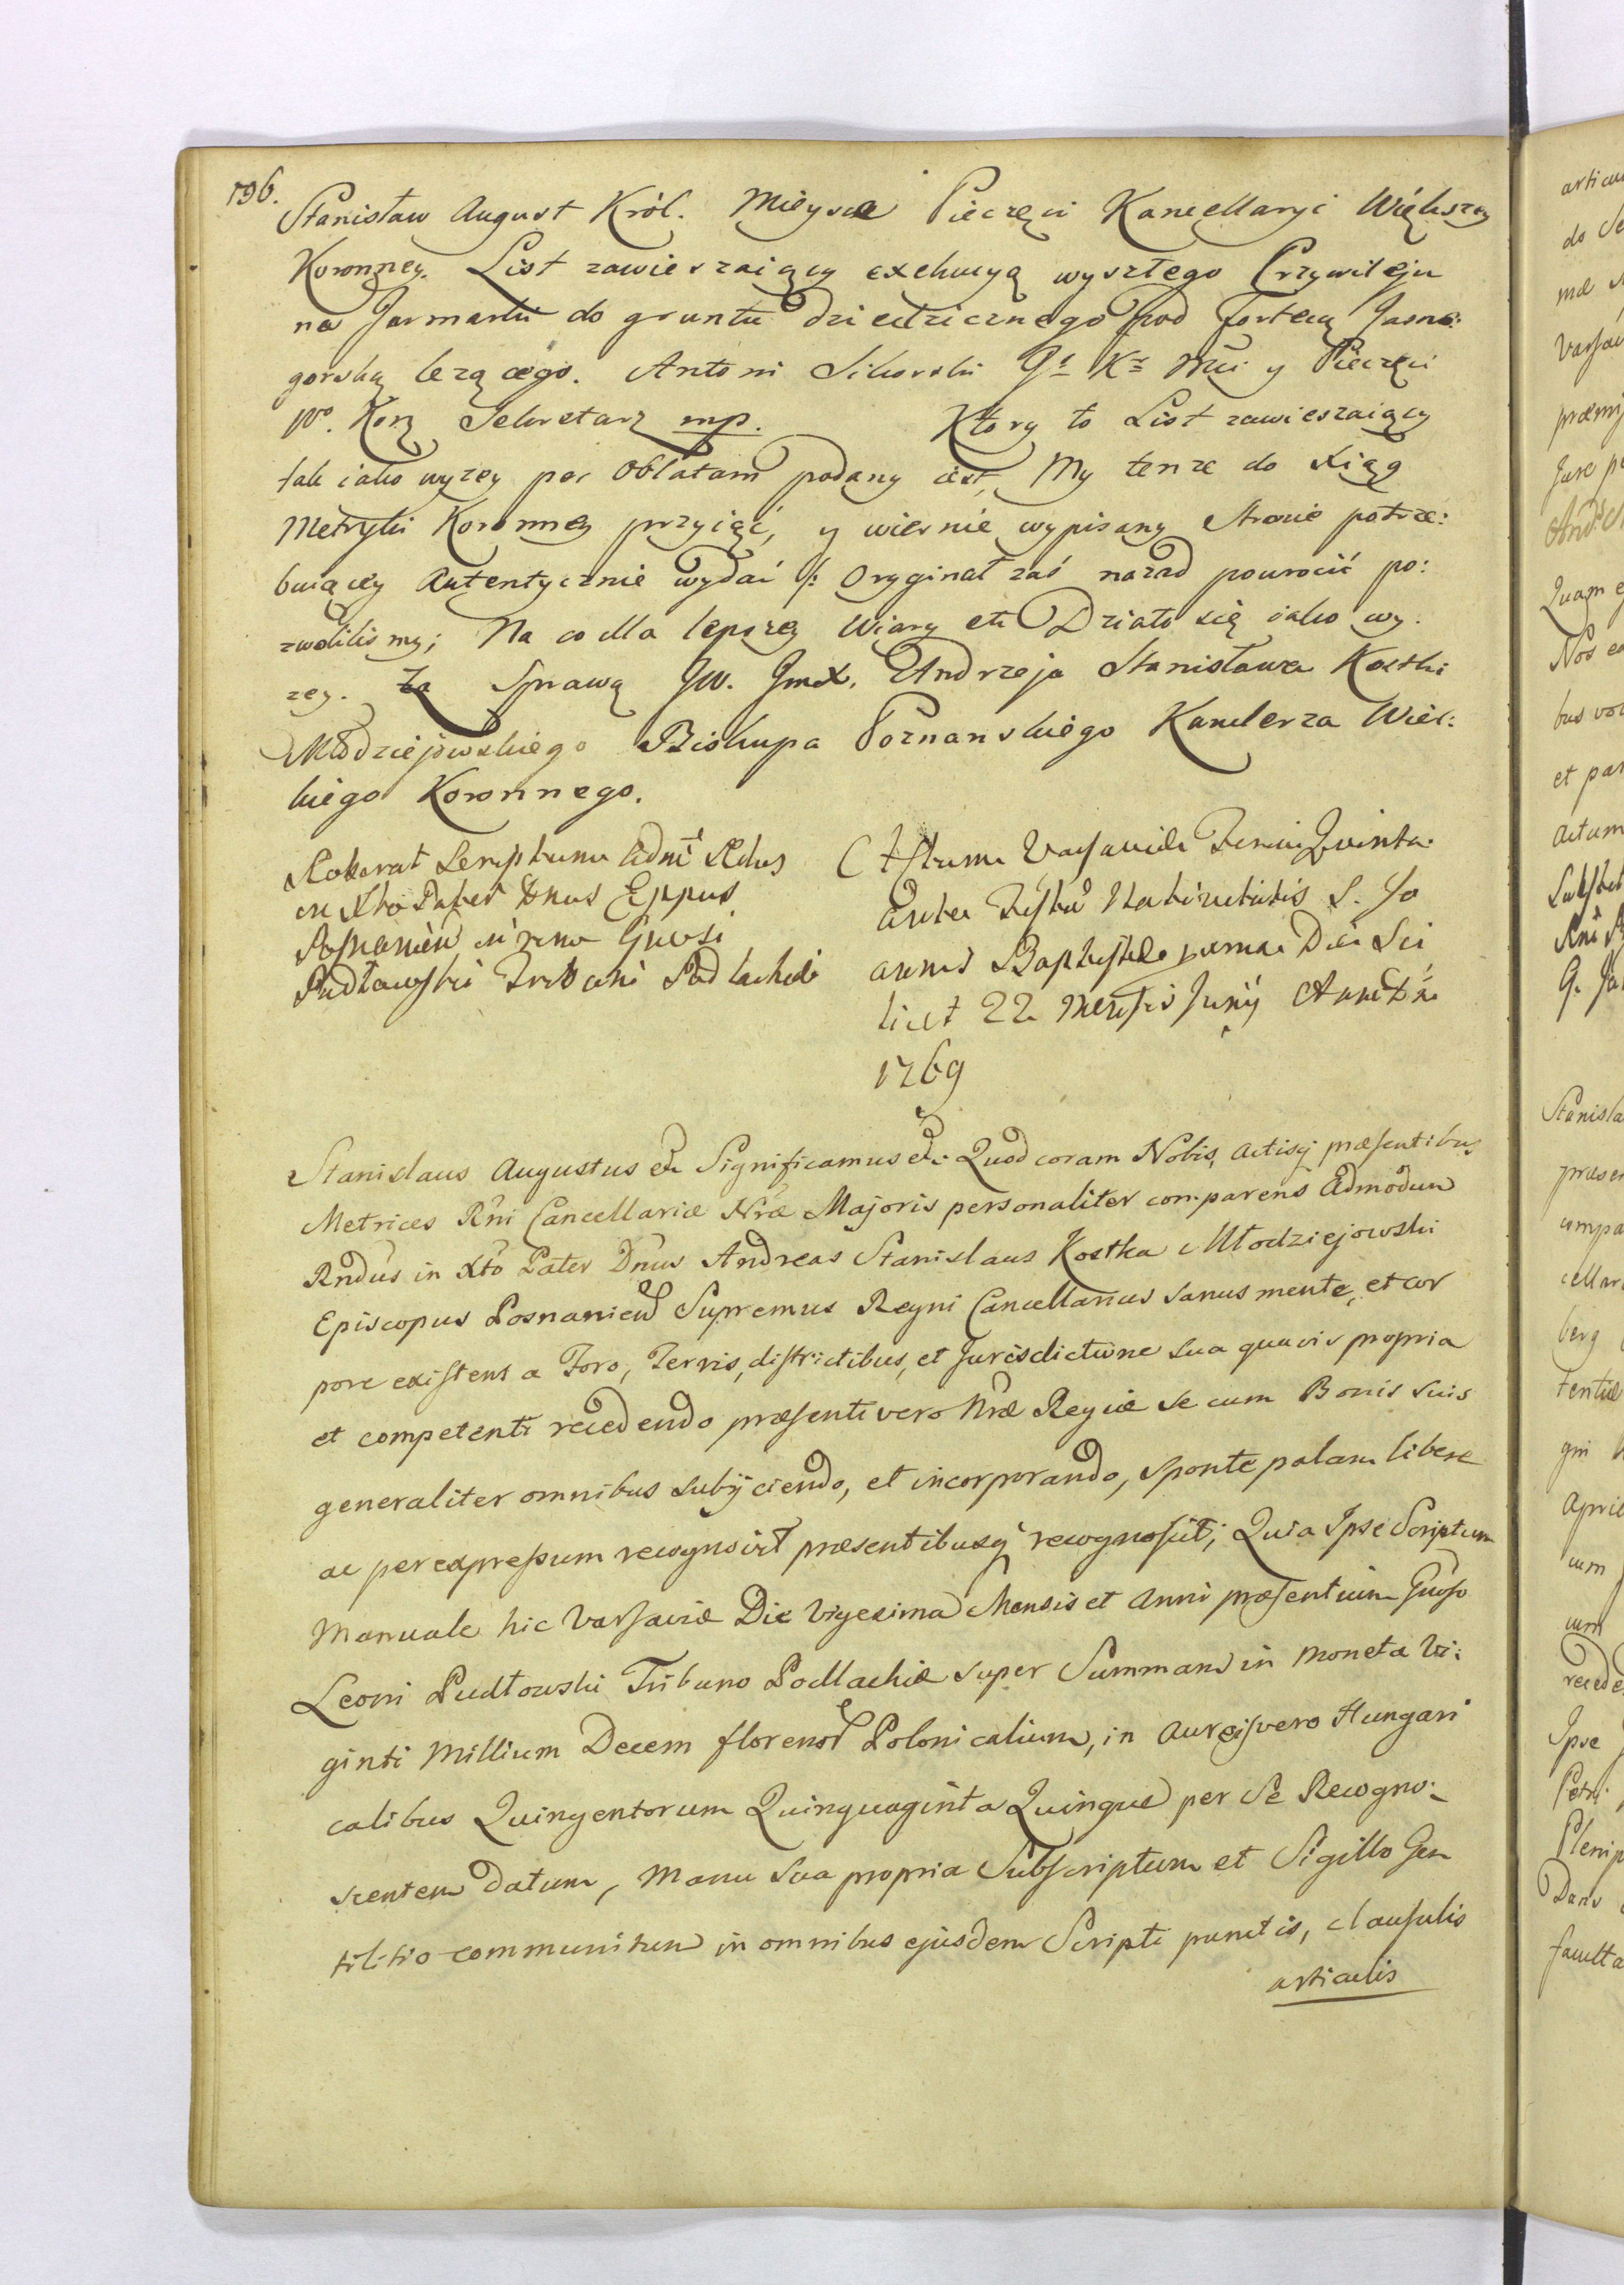 196.
Stanisław August Król. Mieysce Pieczęci Kancellaryi Większey
Koronney. List zawieszaiący exekucyą wyszłego Przywileju
na Jarmarki do gruntu dziedzicznego pod Fortecą Jasno:
gorską lezącego. Antoni Sikorski J. K. Mci y Pieczęci
W. Kor. Sekretarz mp. Ktory to List zawieszaiący
tak iako wyzey per Oblatam podany iest, My tenze do Xiąg
Metryki Koronney przyiąć, y wiernie wypisany Stronie potrze:
buiącey Autentycznie wydać /: Oryginał zaś nazad powrocić po:
zwolilismy; Na co dla lepszey Wiary etc Działo się iako wy:
zey. Za Sprawą JW. JmX. Andrzeja Stanisława Kostki
Młodziejowskiego Biskupa Poznanskiego Kanclerza Wiel:
kiego Koronnego.
Roborat Scriptum Adm Rdus
in Xto Pater Dnus Eppus
Posnanien in rem Gnosi
Pudłowski Tribuni Podlachiæ
Actum Varsaviæ Feria Quinta
ante Festum Nativitatis S. Jo
annis Baptistæ proxima Die Sci
licet 22 Mensis Junij Anno Dni
1769
Stanislaus Augustus etc Significamus etc Quod coram Nobis, actisq præsentibus
Metrices Rni Cancellariæ Nræ Majoris personaliter comparens Admodum
Rndus in Xto Pater Dnus Andreas Stanislaus Kostka Młodziejowski
Episcopus Posnanien Supremus Regni Cancellarius sanus mente, et cor
pore existens a Foro, Terris, districtibus, et Jurisdictione sua quavis propria
et competenti recedendo præsenti vero Nræ Regiæ se cum Bonis suis
generaliter omnibus subijciendo, et incorporando, sponte palam libere
ac per expressum recognovit præsentibusq recognoscit; Quia Ipse Scriptum
Manuale hic Varsaviæ Die Vigesima Mensis et Anni præsentium Gnoso
Leoni Pudłowski Tribuno Podlachiæ super Summam in moneta Vi:
ginti Millium Decem florenor Polonicalium, in aureis vero Hungari
calibus Quingentorum Quinquaginta Quinque per Se Recogno:
scentem datum, Manu sua propria Subscriptum et Sigillo Gen
tilitio communitum in omnibus ejusdem Scripti punctis, clausulis
articulis